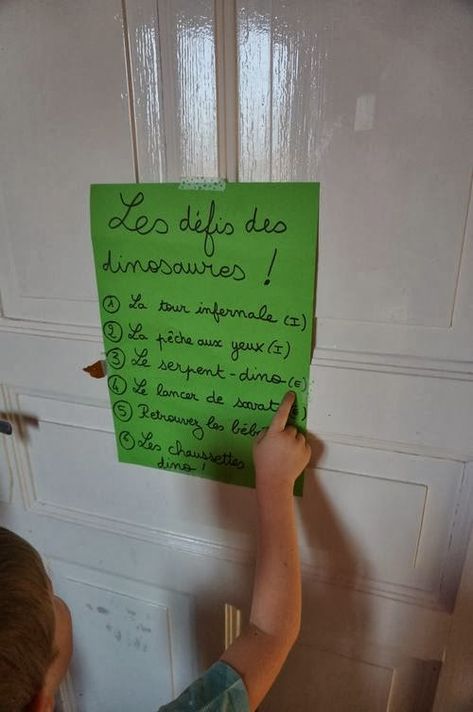 Les défis des
dinosaures !
1 La tour infernale (I)
2 La pêche aux yeux (I)
3 Le serpent-dino (E)
4 Le lancer de savat
5 Retrouvez les béb
6 Les chaussettes
dino !